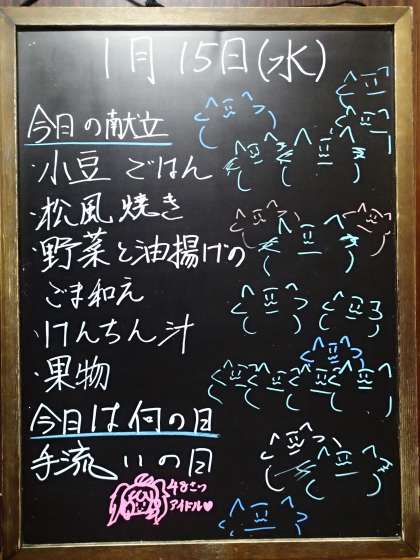 1月15日(水)
今日の献立
・小豆ごはん
・松風焼き
・野菜と油揚げの
ごま和え
・けんちん汁
・果物
今日は何の日
手洗いの日
アイドル♡